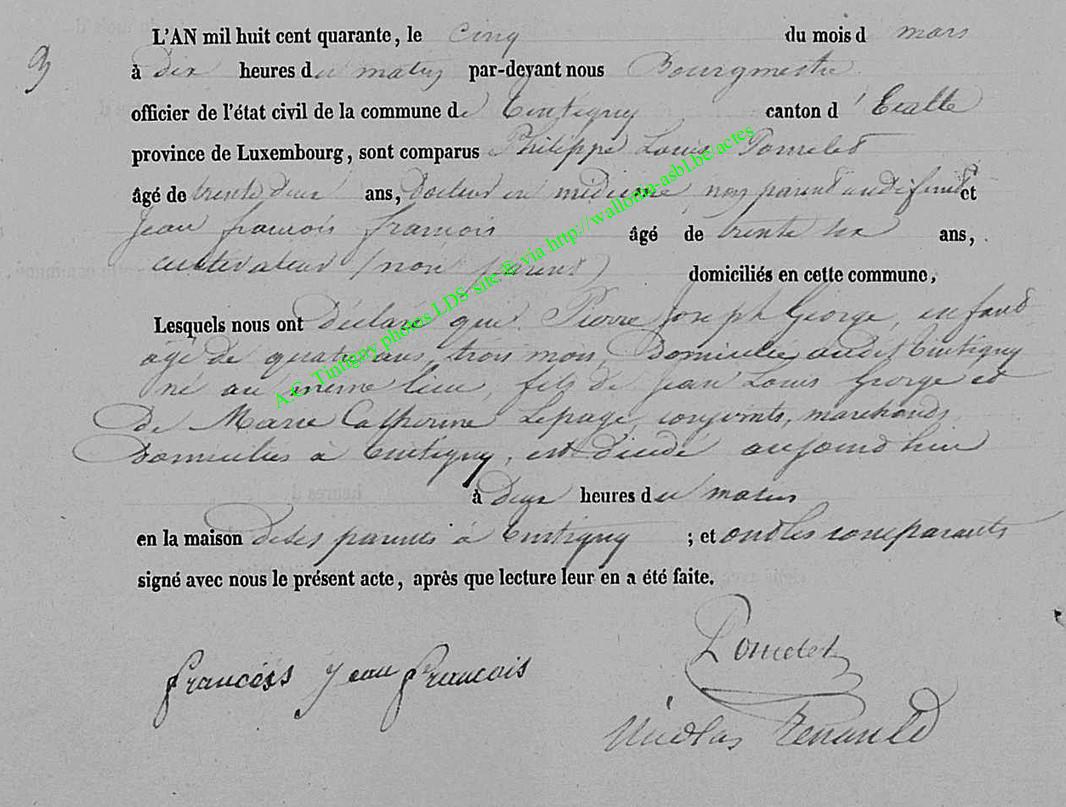 9
L'AN mil huit cent quarante, le cinq du mois d mars
à dix heures du matin par-devant nous Bourgmestre
officier de l'état civil de la commune de Tintigny canton d'Etalle
province de Luxembourg, sont comparus Philippe Louis Pomelet
âgé de trente deux ans, Docteur en médecine, non parent du défunt et
Jean francois francois âgé de trente six ans,
cultivateur (non parent) domiciliés en cette commune,
Lesquels nous ont déclaré que Pierre Joseph George, enfant
âgé de quatre ans, trois mois, Domicilié audit Tintigny
né au même lieu, fils de Jean Louis George et
de Marie Catherine Lepage, conjoints, marchands,
Domiciliés à Tintigny, est décédé aujourd'hui
à deux heures du matin
en la maison de ses parents à Tintigny ; et ont les comparants
signé avec nous le présent acte, après que lecture leur en a été faite.
Pomelet
francois Jean francois
Nicolas Renauld
A.C. Tintigny photos LDS site ® via http://wallonia-asbl.be/actes